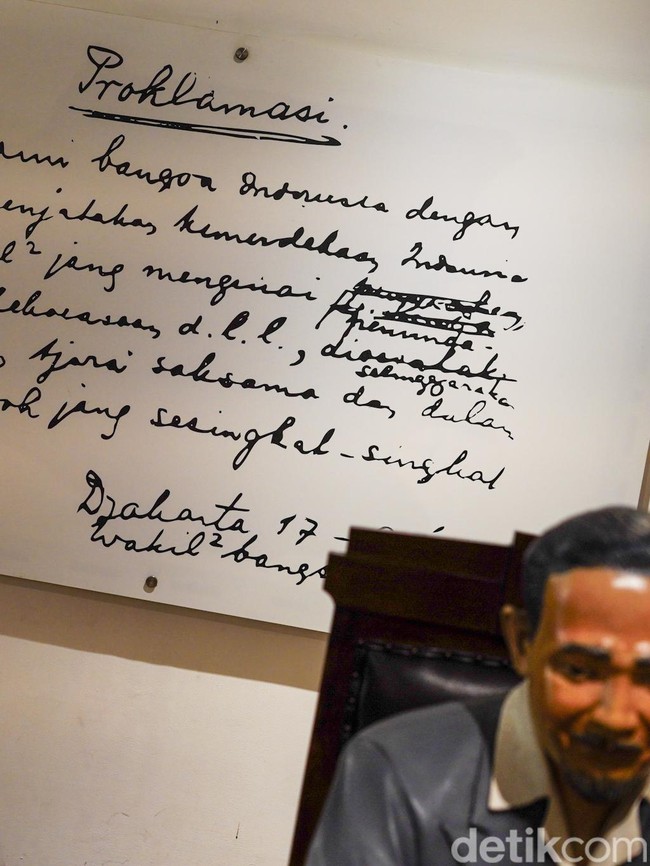 Proklamasi.
ami bangsa Indonesia dengan
enjatakan kemerdekaan Indonesia
l² jang mengenai pemindahan
kekoeasaan d.l.l., diselenggarakan
tjara saksama dan dalam
oh jang sesingkat-singkat
Djakarta 17 -
Wakil² bangs
detikcom